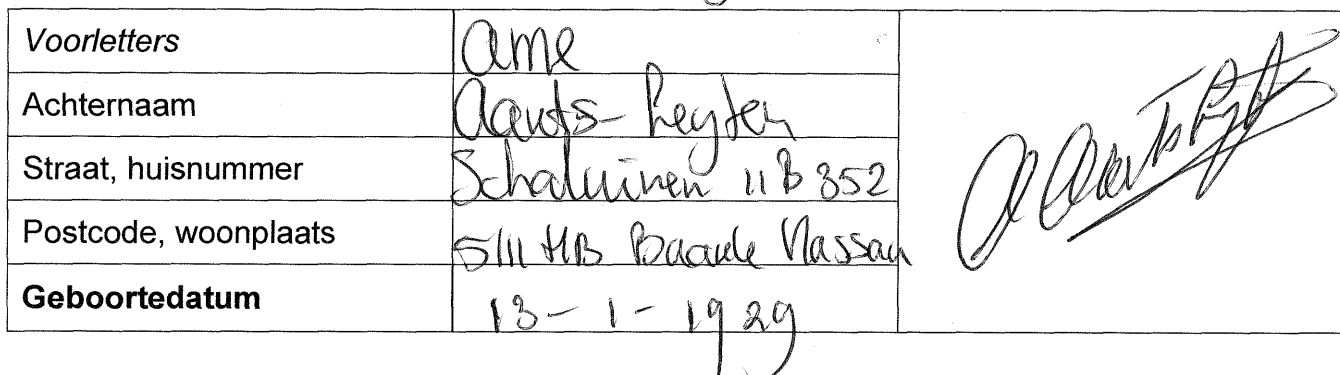 Voorletters ame
Achternaam Aarts-Leyten
Straat, huisnummer Schaluinen 11 B 352
Postcode, woonplaats 5111 HB Baarle Nassau
Geboortedatum 13-1-1929